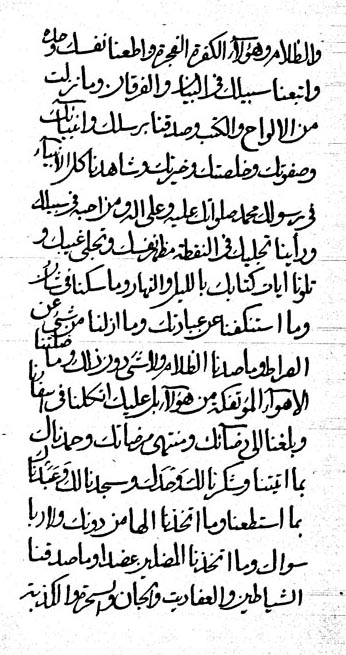 والظلام وهؤلاء الكفرة الفجرة واطعنا نفسك وحده
واتبعنا سبيلك في البيان والفرقان وما نزلت
من الالواح والكتب وصدقنا برسلك وانبيائك
وصفوتك وخيرتك وشاهدنا كل الانبياء
في رسولك محمد صلواتك عليه وعلى اله ومن احبه في سبيلك
ورأينا تجليك في النقطة مظهر نفسك وتجلى غيبك و
تلونا ايات كتابك بالليل والنهار وما سكنا في
وما استنكفنا عن عبادتك وما ازلنا من شيء عن
الصراط وما صدنا الظلام ولا شيء دون ذلك وما
الاهواء المؤتفكة من هؤلاء بل عليك اتكلنا في
وبلغنا الى رضائك ومنتهى مرضاتك وحمدناك
بما اتيتنا وشكرنا لك وحدك وسجدنا لك وعبدناك
بما استطعنا وما اتخذنا الها من دونك ولا ربا
سواك وما اتخذنا المضلين عضدا وما صدقنا
الشياطين والعفاريت والجان والسحرة والكذبة